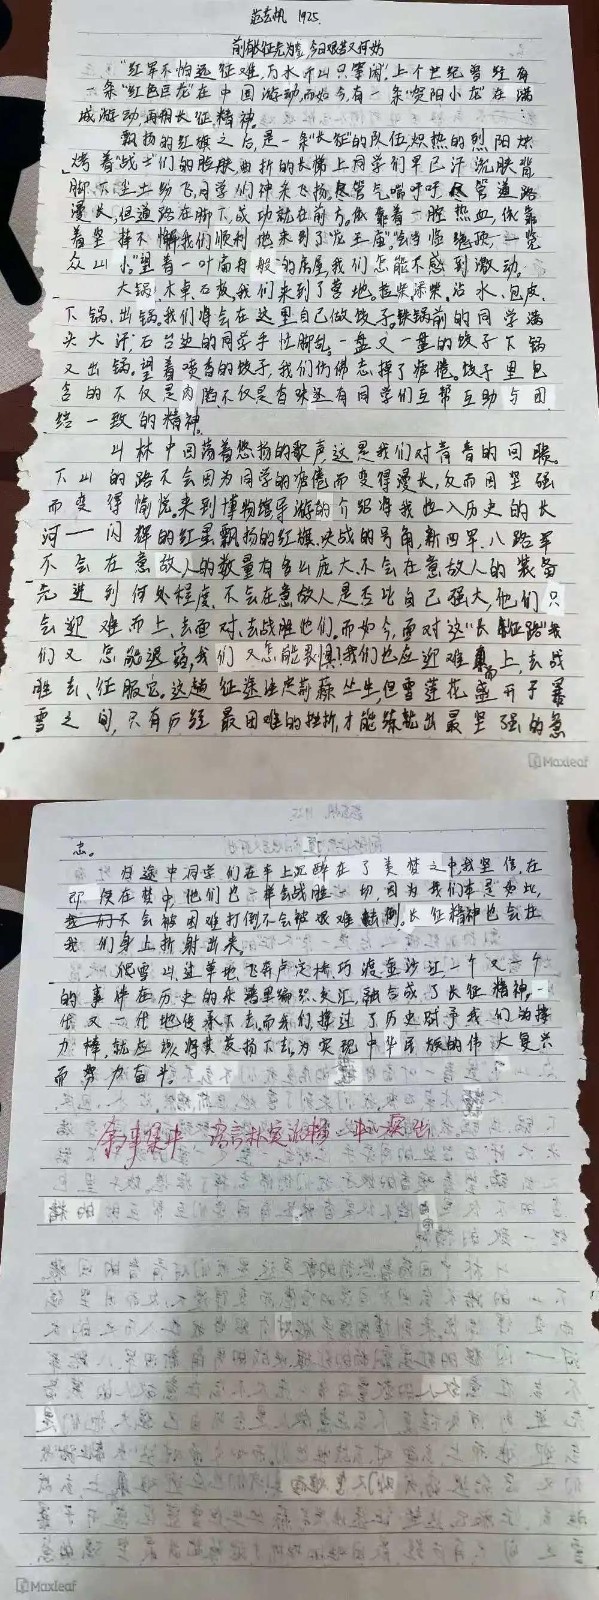 1925.
前包征尤为壹,今日艰苦又何妨
"红军不怕远征难,万水千山只等闲"。上个世纪曾经有
一条"红色巨龙"在中国游动,而如今,有一条"贵阳小龙"在
游动,再朔长征精神。
飘扬的红旗之后,是一条"长征"的队伍,炽热的烈阳烘
烤着"战士"们的脸肤,曲折的长梯上同学们早已汗流浃背
脚下尘土纷飞,同学们神采飞扬。尽管气喘呼呼,尽管道路
漫长,但道路在脚下,成功就在前方。依靠着一腔热血,依靠
着坚持不懈我们顺利地来到了"龙王庙"。"会当临绝顶,一览
众山小。"望着一叶扁舟般的房屋,我们怎能不感到激动。
大锅、木桌、石板,我们来到了营地。捡柴添柴、沾水、包皮、
下锅、出锅。我们将会在这里自己做饺子。铁锅前的同学满
头大汗,石台边的同学手忙脚乱。一盘又一盘的饺子下锅
又出锅。望着喷香的饺子,我们仿佛忘掉了疲倦。饺子里包
含的不仅是肉馅,不仅是香味,还有同学们互帮互助与团
结一致的精神。
山林中回荡着悠扬的歌声,这是我们对青春的回报。
下山的路不会因为同学的疲倦而变得漫长,反而因坚强
而变得愉悦。来到博物馆,导游的介绍将我拉入历史的长
河——闪辉的红星,飘扬的红旗、决战的号角,新四军、八路军
不会在意敌人的数量有多么庞大,不会在意敌人的装备
先进到何处程度,不会在意敌人是否比自己强大,他们只
会迎难而上,去面对、去战胜他们。而如今,面对这"长征路"我
们又怎能退窈,我们又怎能畏惧!我们也应迎难而上,去战
胜去、征服它。这趟征途注定荆棘丛生,但雪莲花盛开于暴
雪之间,只有历经最困难的挫折,才能练就出最坚强的意
志。
归途中同学们在车上沉醉在了美梦之中,我坚信,在
即使在梦中,他们也一样会战胜一切,因为我们本是如此,
不会被困难打倒不会被艰难击倒。长征精神也会在
我们身上折射出来。
爬雪山、过草地、飞夺卢定桥、巧渡金沙江,一个又一个
的事件在历史的长路里编织、交汇,融合成了长征精神。一
代又一代地传承下去。而我们,撑过了历史赋予我们的接
力棒,就应该将其发扬下去,为实现中华民族的伟大复兴
而努力奋斗。
叙事集中 语言朴实流畅 中心突出
Maxleaf
Maxleaf